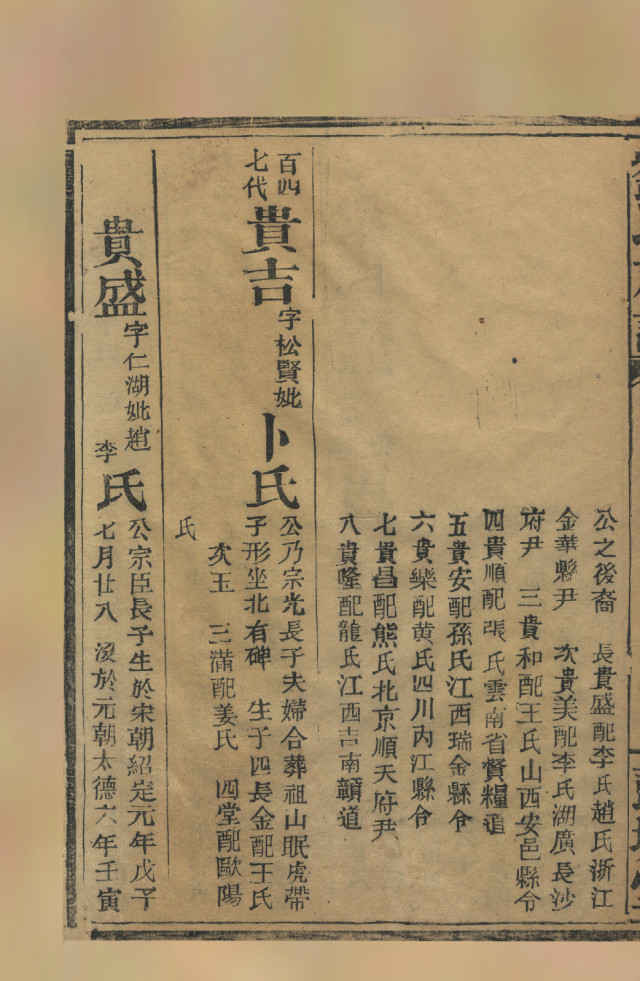 公之後裔　長貴盛配李氏趙氏浙江
金華縣尹　次貴美配李氏湖廣長沙
府尹　三貴和配王氏山西安邑縣令
四貴順配張氏雲南省督糧道
五貴安配孫氏江西瑞金縣令
六貴樂配黄氏四川内江縣令
七貴昌配熊氏北京順天府尹
八貴隆配龍氏江西吉南贛道
百四
七代
貴吉
字松賢妣
卜氏
公乃宗光長子夫婦合葬祖山眠虎帶
子形坐北有碑　生子四長金配王氏
次玉　三滿配姜氏　四堂配歐陽
氏
貴盛
字仁湖妣趙
李
氏
公宗臣長子生於宋朝紹定元年戊子
七月廿八　没於元朝太德六年壬寅